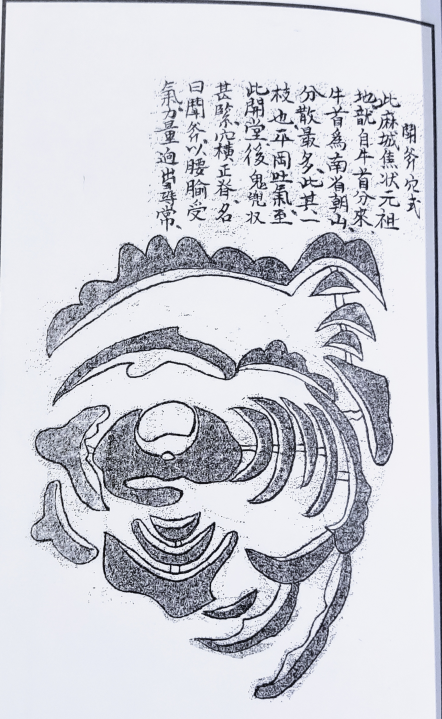 開斧穴式
此麻城焦狀元祖
地自牛首分來
牛首為南省朝山、
分散最多、此其一
枝也平岡吐氣、至
此開堂後鬼
甚緊穴橫正脊名
曰開斧以腰腧受
氣、力量迥出尋常、